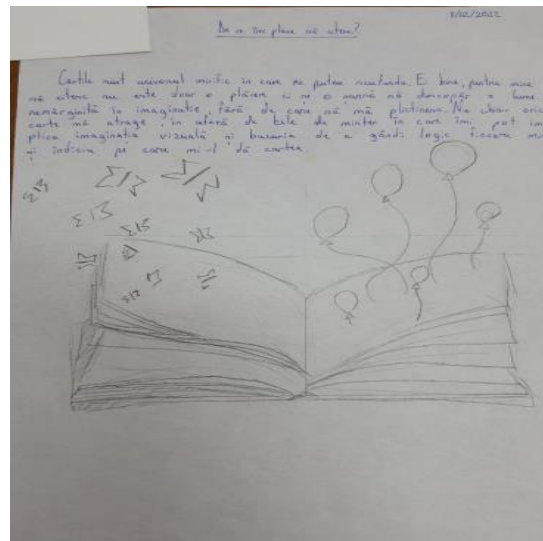 11/02/2022
De ce îmi place să citesc?
Cărțile sunt universul mirific în care ne putem scufunda. Ei bine, pentru mine
să citesc nu este doar o plăcere ci și o șansă să descopăr o lume
nemărginită în imaginație, fără de care să mă plictisesc. Nu doar orice
carte mă atrage, în afară de cele de mister în care îmi pot im
plica imaginația vizuală și bucuria de a gândi logic fiecare mis
și indiciu pe care mi-l dă cartea.